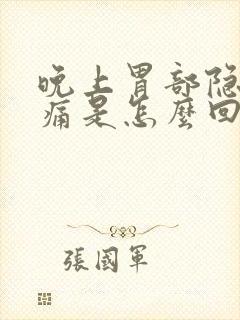 晚上胃部隐
痛是怎麼回
張國軍